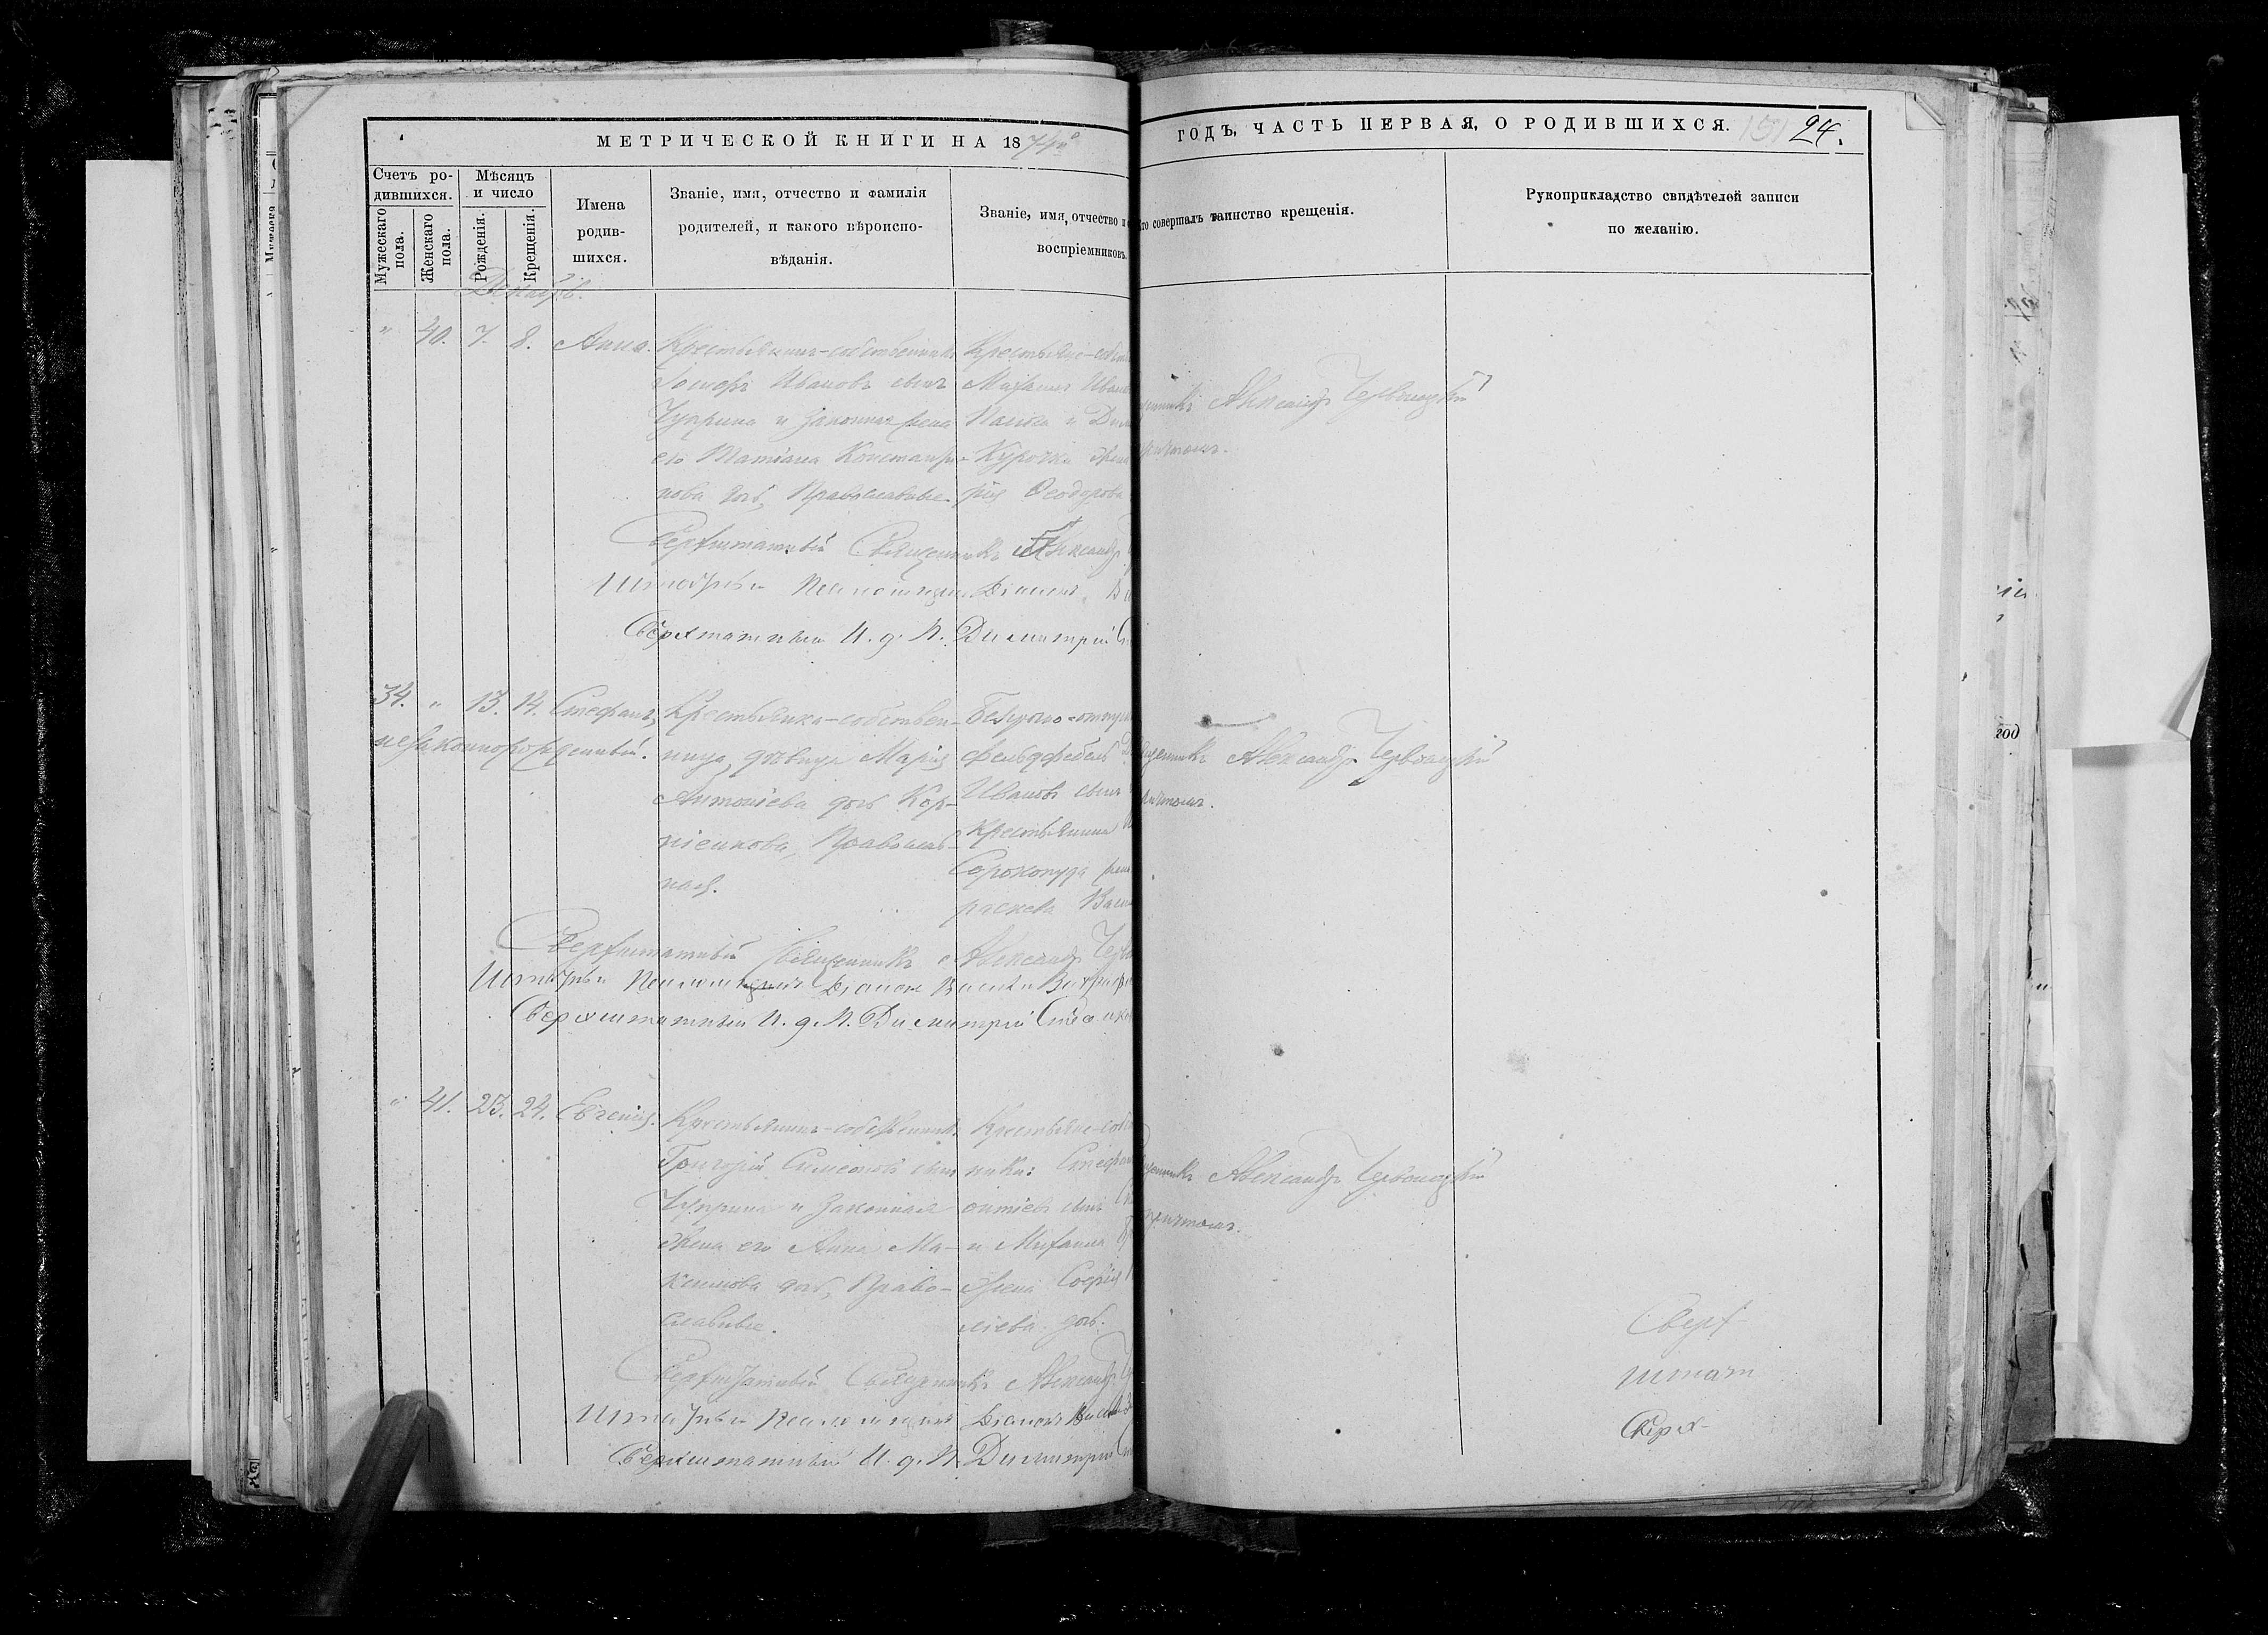 МЕТРИЧЕСКОЙ КНИГИ НА 1874й
ГОДЪ, ЧАСТЬ ПЕРВАЯ, О РОДИВШИХСЯ. 151 24.
Счетъ ро-
дившихся.
Мужескаго пола.
Женскаго пола.
Мѣсяцъ
и число
Рожденія.
Крещенія.
Имена
родив-
шихся.
Званіе, имя, отчество и фамилія
родителей, и какого вѣроиспо-
вѣданія.
Званіе, имя, отчество и
воспріемниковъ.
то совершалъ таинство крещенія.
Рукоприкладство свидѣтелей записи
по желанію.
Декабрь.
" 40. 7. 8. Анна.
Крестьянинъ-собственникъ
Іосифъ Ивановъ сынъ
Чуприна и законная жена
его Татіана Константи-
нова дочь, Православные
Крестьяне-собств
Михаилъ Ивано
и Дим
Курочки жена
рія Ѳеодорова
Александръ Червоноцкій
причтомъ.
Сверхштатный Священникъ Александръ
Штатный Псаломщикъ Діаконъ
Сверхштатный И. д. П. Димитрій
34. " 13. 14. Стефанъ,
незаконнорожденный.
Крестьянка-собствен-
ница, дѣвица Марія
Антоніева дочь Кор-
ніенкова, Православ-
ная.
Безсрочно-отпуск
фельдфебель
Ивановъ сынъ
Крестьянина
Сорокопуда жена
раскева Васи
щенникъ Александръ Червоноцкій
причтомъ.
Сверхштатный Священникъ Александръ Черво
Штатный Псаломщикъ Діаконъ
Сверхштатный И. д. П. Димитрій
" 41. 23. 24. Евгенія.
Крестьянинъ-собственникъ
Григорій Симеоновъ сынъ
Чуприна и законная
жена его Анна Ма-
ксимова дочь, Право-
славные.
Крестьяне-соб
ники: Стефанъ
онтіевъ сынъ
и Михаила
жена Софія
ліева дочь.
щенникъ Александръ Червоноцкій
причтомъ.
Сверхштатный Священникъ Александръ
Штатный Псаломщикъ Діаконъ
Сверхштатный И. д. П. Димитрій
Сверх-
штат
Сверх-